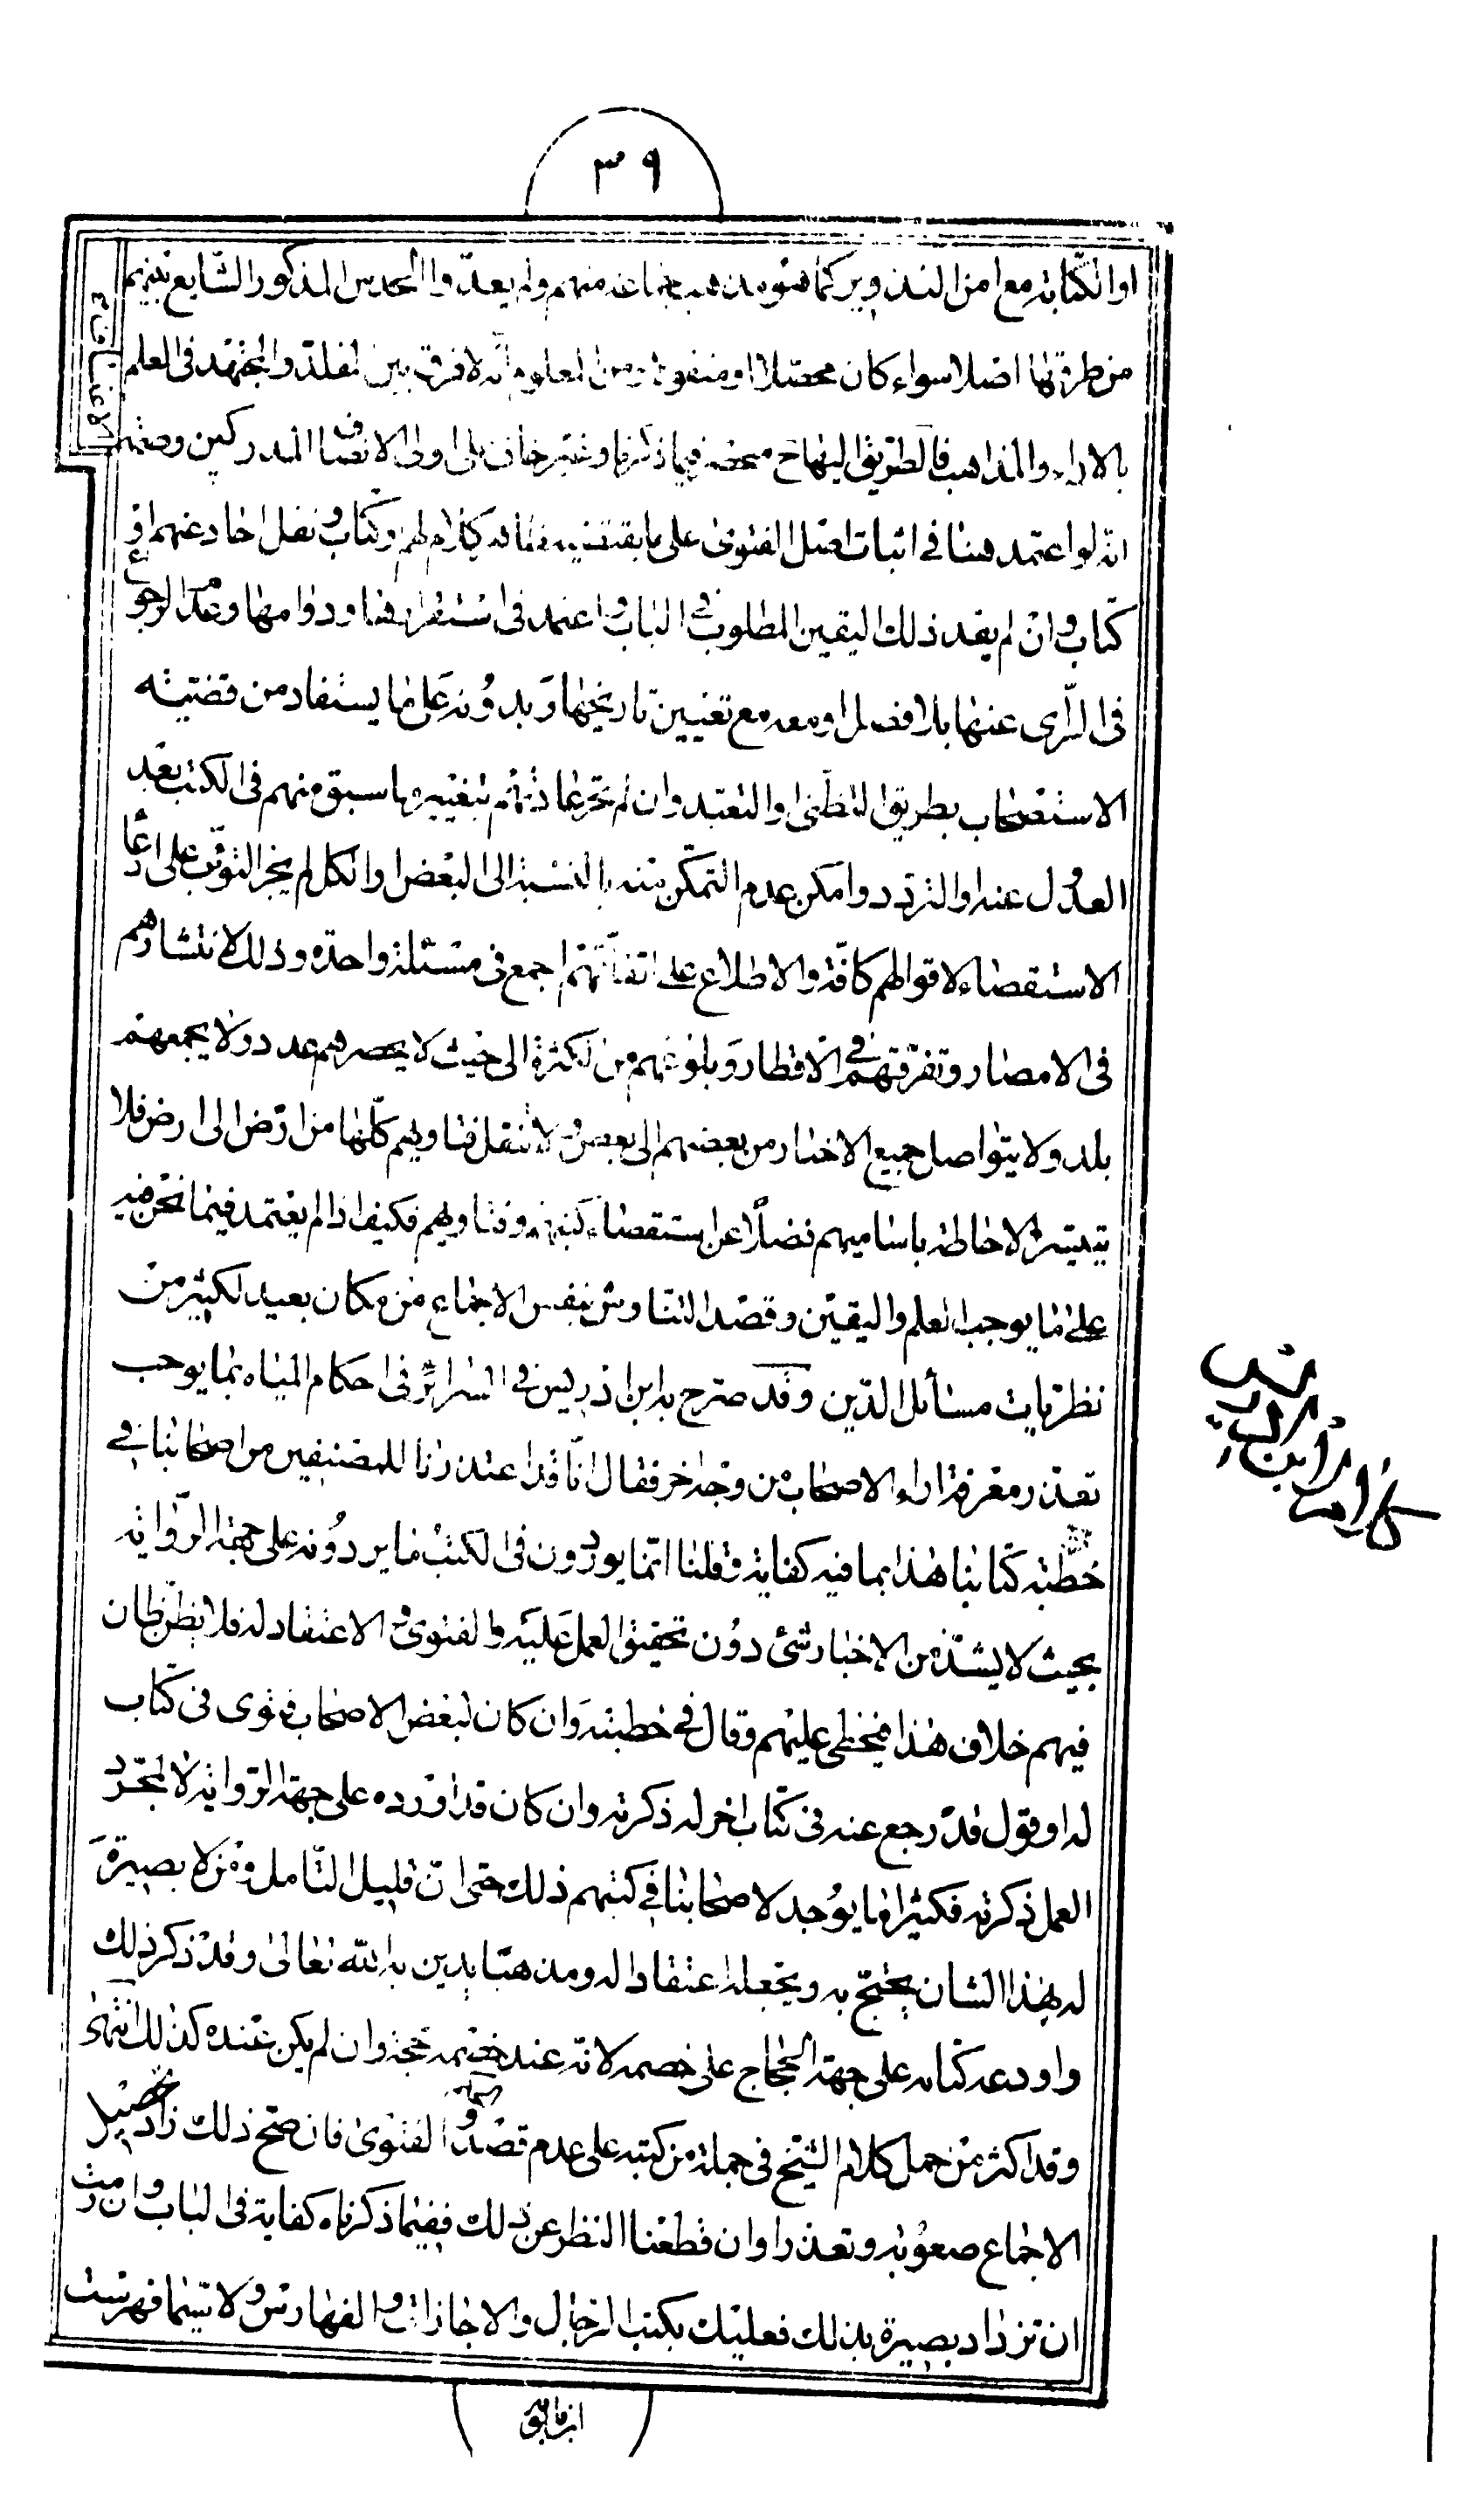 ٣٩
او الكتابة مع امن التذوير كما هو مذهب جماعة منهم ولم يعدّوا الحدس المذكور الشّايع بينهم
من طرقها اصلا سواء كان محصّلا او منقولا ومن المعلوم انّه لا فرق بين المقلد والمجتهد فى العلم
بالاراء والمذاهب فالطريق اليها ح منحصر فيما ذكرنا وغير خاف على اولى الانصاف المدركين وصفهم
انّه لو اعتمد هنا فى اثبات اصل الفتوى على ما يقتضيه ظاهر كلامهم وكتاب ونقل احاد عنهم او فى
كتاب وان لم يفد ذلك اليقين المطلوب فى الباب واعتمد فى استقرارها ودوامها وعدم الرجوع
فى الرّاى عنها بلا فصل او معه مع تعيين تاريخها وبدونه على ما يستفاد من قضيّة
الاستصحاب بطريق التظنى والتعبد وان لم تجر عادتهم بتغيير ما سبق منهم فى الكتب بعد
العدول عنه او التردد وامكن عدم التمكّن منه بالنسبة الى البعض او الكل لم يجز التوثّب على ادّعاء
الاستقصاء لاقوالهم كافّة والاطلاع على اتفاقهم اجمع فى مسئلة واحدة وذلك لانتشارهم
فى الامصار وتفرقهم فى الاقطار وبلوغهم من الكثرة الى حيث لا يحصرهم عدد ولا يجمعهم
بلد ولا يتواصل جميع الاخبار من بعضهم الى بعض ولا تنقل فتاويهم كلّها من ارض الى ارض فلا
يتيسّر الاحاطة باساميهم فضلًا عن استقصاء كتبهم وفتاويهم فكيف اذا لم يعتمد فيما نحن فيه
على ما يوجب العلم واليقين وقصد التناوش بنفس الاجماع من مكان بعيد لكثير من
نظريات مسائل الدّين وقد صرح به ابن ادريس فى السرائر فى احكام المياه بما يوجب
تعذر معرفة اراء الاصحاب من وجه اخر فقال انّا قد اعتذرنا للمصنفين من اصحابنا فى
خطبة كتابنا هذا بما فيه كفاية وقلنا انّما يوردون فى الكتب ما يوردونه على جهة الرّواية
بحيث لا يشذ من الاخبار شئ دون تحقيق العمل عليه والفتوى والاعتقاد له فلا يظن ظان
فيهم خلاف هذا فيخطى عليهم وقال فى خطبته وان كان لبعض الاصحاب فتوى فى كتاب
له او قول قد رجع عنه فى كتاب اخر له ذكرته وان كان قد اورده على جهة الرواية لا لمجرّد
العمل ذكرته فكثيرا ما يوجد لاصحابنا فى كتبهم ذلك حتى انّ قليل التأمل ومن لا بصيرة
له بهذا الشان يحتج به ويجعله اعتقادا له ومذهبا يدين به الله تعالى وقد ذكر ذلك
واودعه كتابه على جهة الحجاج على خصمه لانّه عند خصمه حجة وان لم يكن عنده كذلك انتهى
وقد اكثر من حمل كلام الشيخ فى جملة من كتبه على عدم قصد الفتوى فان صحّ ذلك زاد تحصيل
الاجماع صعوبة وتعذرا وان قطعنا النظر عن ذلك ففيما ذكرناه كفاية فى الباب وان رمت
ان تزداد بصيرة بذلك فعليك بكتب الرجال والاجازات والفهارس ولا سيّما فهرست
كلام ابن ادريس